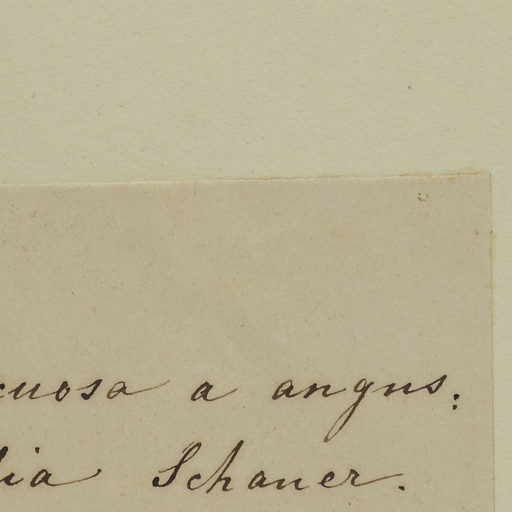 cuosa a angus:
lia Schauer.